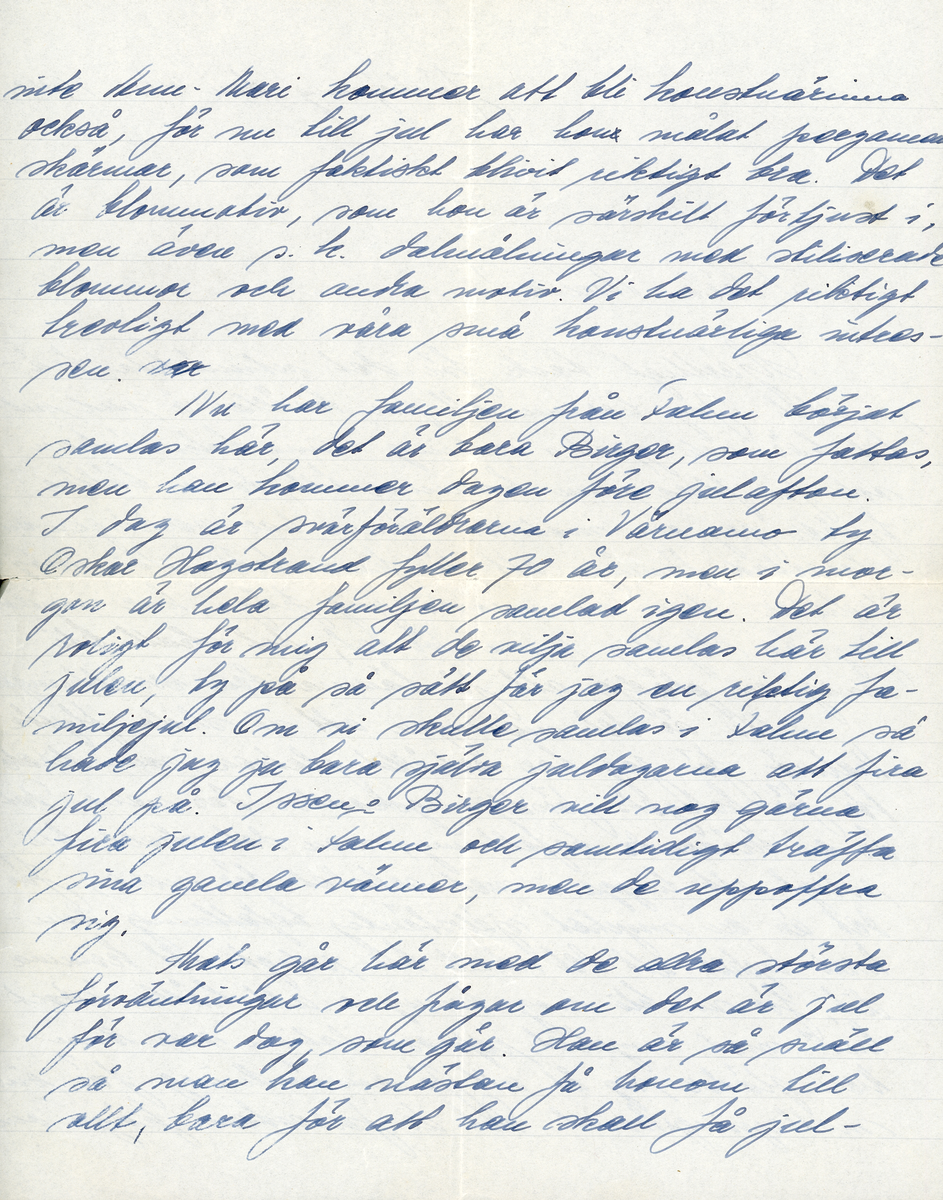 inte Ann-Mari kommer att bli konstnärinna
också, för nu till jul har hon målat pergament
skärmar, som faktiskt blivit riktigt bra. Det
är blommotiv, som hon är särskilt förtjust i,
men även s. k. dalmålningar med stiliserade
blommor och andra motiv. Vi ha det riktigt
trevligt med våra små konstnärliga intres-
sen.
Nu har familjen från Falun börjat
samlas här, det är bara Birger, som fattas,
men han kommer dagen före julafton.
I dag är svärföräldrarna i Värnamo ty
Oskar Hagstrand fyller 70 år, men i mor-
gon är hela familjen samlad igen. Det är
roligt för mig att de vilja samlas här till
julen, ty på så sätt får jag en riktig fa-
miljejul. Om vi skulle samlas i Falun så
hade jag ju bara själva juldagarna att fira
jul på. Birger vill nog gärna
fira julen i Falun och samtidigt träffa
sina gamla vänner, men de uppoffra
sig.
Mats går här med de allra största
förväntningar och frågar om det är jul
för var dag, som går. Han är så snäll
så man kan nästan få honom till
allt, bara för att han skall få jul-